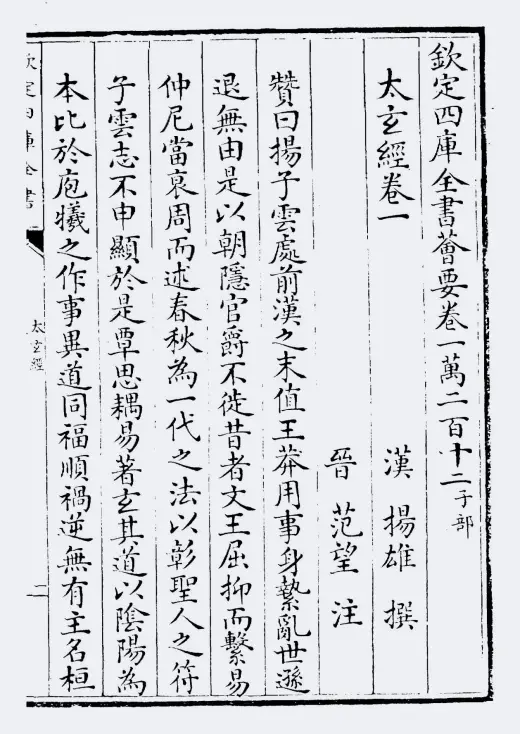 欽定四庫全書薈要卷一萬二百十二子部
太玄經卷一
漢 揚雄 撰
晉 范望 注
贊曰揚子雲處前漢之末值王莽用事身縶亂世遜
退無由是以朝隱官爵不徙昔者文王屈抑而繫易
仲尼當衰周而述春秋為一代之法以彰聖人之符
子雲志不申顯於是覃思耦易著玄其道以陰陽為
本比於庖犧之作事異道同福順禍逆無有主名桓
欽定四庫全書
太玄經
二